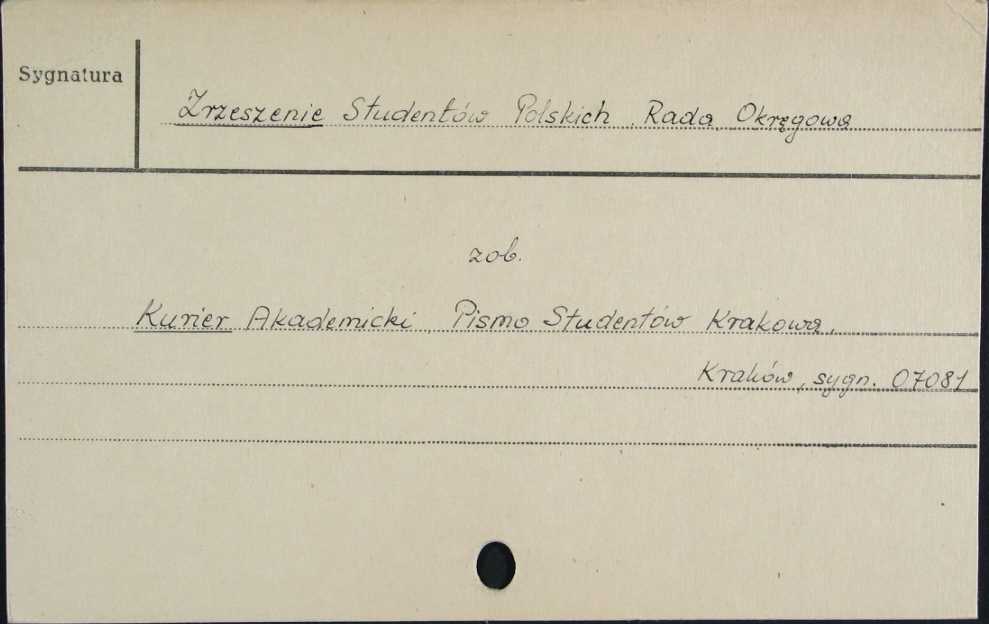 Sygnatura
Zrzeszenie Studentów Polskich. Rada Okręgowa
zob.
Kurier Akademicki. Pismo Studentów Krakowa,
Kraków, sygn. 07081